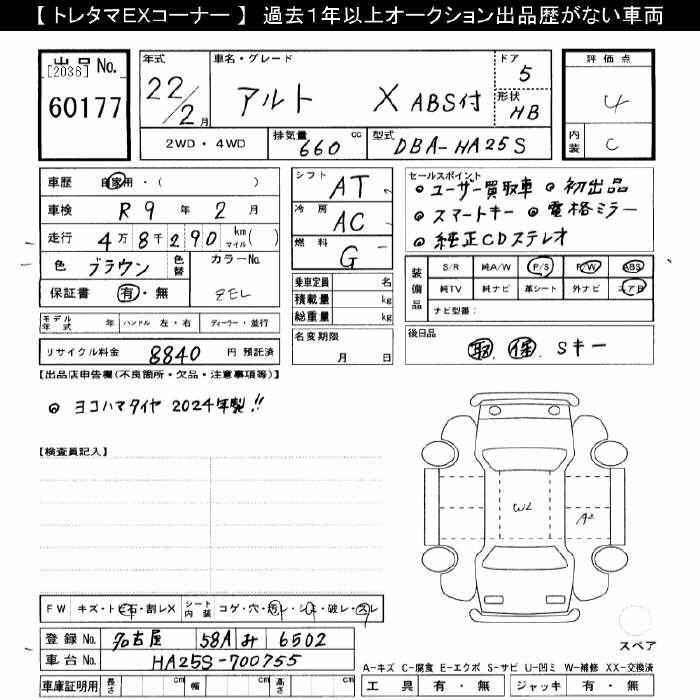 【トレタマEXコーナー】 過去1年以上オークション出品歴がない車両
出品No. [2036] 60177
年式 22/2月
車名・グレード アルト X ABS付
ドア 5
形状 HB
評価点 4
内装 C
2WD・4WD 排気量 660 cc 型式 DBA-HA25S
車歴 自家用・( )
車検 R9年 2月
走行 4万8千290 km マイル( )
色 ブラウン 色替 カラーNo. ZEL
保証書 有・無
シフト AT
冷房 AC
燃料 G
乗車定員 名
積載量 kg
総重量 kg
名変期限 月 日
セールスポイント
◎ユーザー買取車 ◎初出品
◎スマートキー ◎電格ミラー
◎純正CDステレオ
装備品 S/R 純A/W P/S P/W ABS
純TV 純ナビ 革シート 外ナビ エアB
ナビ型番:
モデル年式 年 ハンドル 左・右 ディーラー・並行
リサイクル料金 8840 円 預託済
後日品 取 保 Sキー
【出品店申告欄(不良箇所・欠品・注意事項等)】
◎ヨコハマタイヤ 2024年製!!
【検査員記入】
W2
A2
FW キズ・トビ石・割レX シート内装 コゲ・穴・汚レ・シミ・破レ・スレ
登録No. 名古屋 58A み 6502
車台No. HA25S-700755
車庫証明用 長さ cm 幅 cm 高さ cm
スペア
A-キズ C-腐食 E-エクボ S-サビ U-凹ミ W-補修 XX-交換済
工具 有・無 ジャッキ 有・無